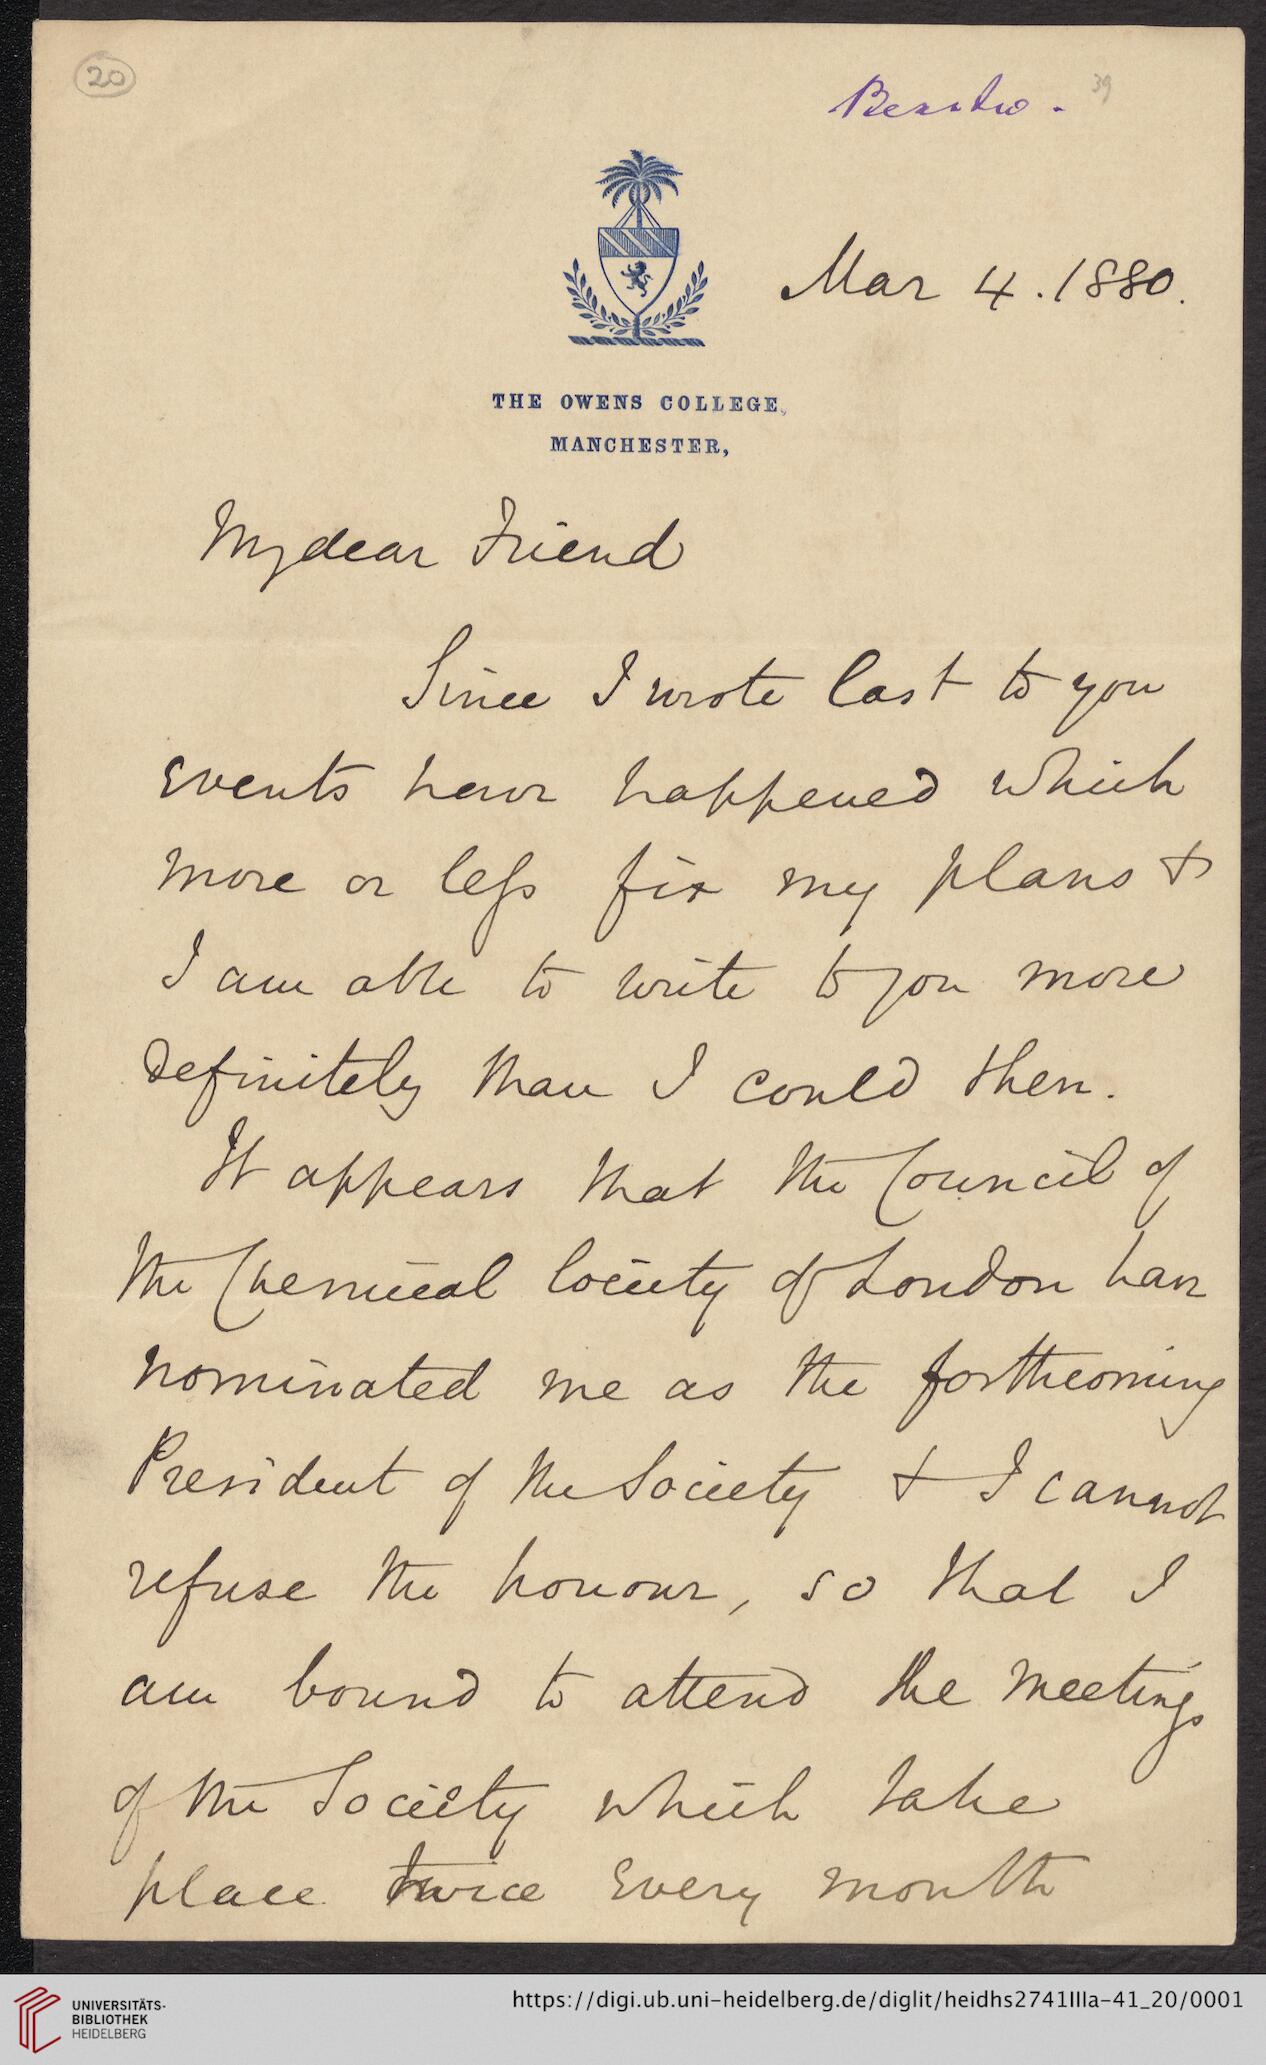 20
39
Mar 4. 1880.
THE OWENS COLLEGE,
MANCHESTER,
My dear Friend
Since I wrote last to you
events have happened which
more or less fix my plans &
I am able to write to you more
definitely than I could then.
It appears that the Council of
the Chemical Society of London have
nominated me as the forthcoming
President of the Society & I cannot
refuse the honour, so that I
am bound to attend the meetings
of the Society which take
place twice every month
UNIVERSITÄTS-
BIBLIOTHEK
HEIDELBERG
https://digi.ub.uni-heidelberg.de/diglit/heidhs2741IIIa-41_20/0001